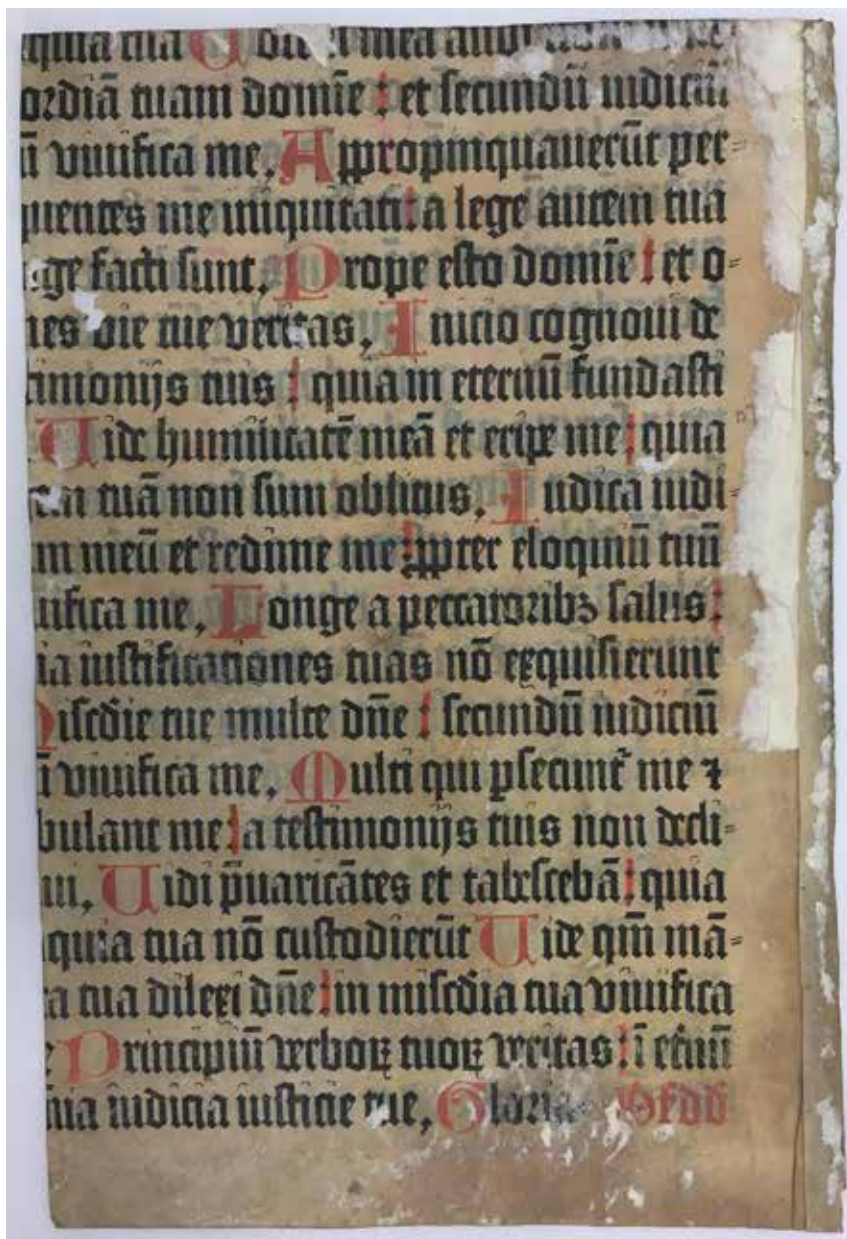 quia tua Uocē mea audi
ordiā tuam domīe : et secundū iudiciū
ū viuifica me, Appropinquauerūt per=
quentes me iniquitati : a lege autem tua
nge facti sunt, Prope esto domīe : et o=
nes vie tue veritas, Inicio cognoui de
timonijs tuis : quia in eternū fundasti
Uide humilitatē meā et eripe me : quia
em tuā non sum oblitus, Iudica iudi=
m meū et redime me : ꝓpter eloquiū tuū
uifica me, Longe a peccatoribꝫ salus :
ia iustificationes tuas nō exquisierunt
Miscd̄ie tue multe dn̄e : secundū iudiciū
ū viuifica me, Multi qui ꝑsecunt᷑ me ⁊
bulant me : a testimonijs tuis non decli=
ui, Uidi p̄uaricātes et tabescebā : quia
quia tua nō custodierūt Uide qm̄ mā=
ta tua dilexi dn̄e : in miscd̄ia tua viuifica
e Principiū verboꝝ tuoꝝ veritas : ī et̄nū
nia iudicia iusticie tue, Gloria